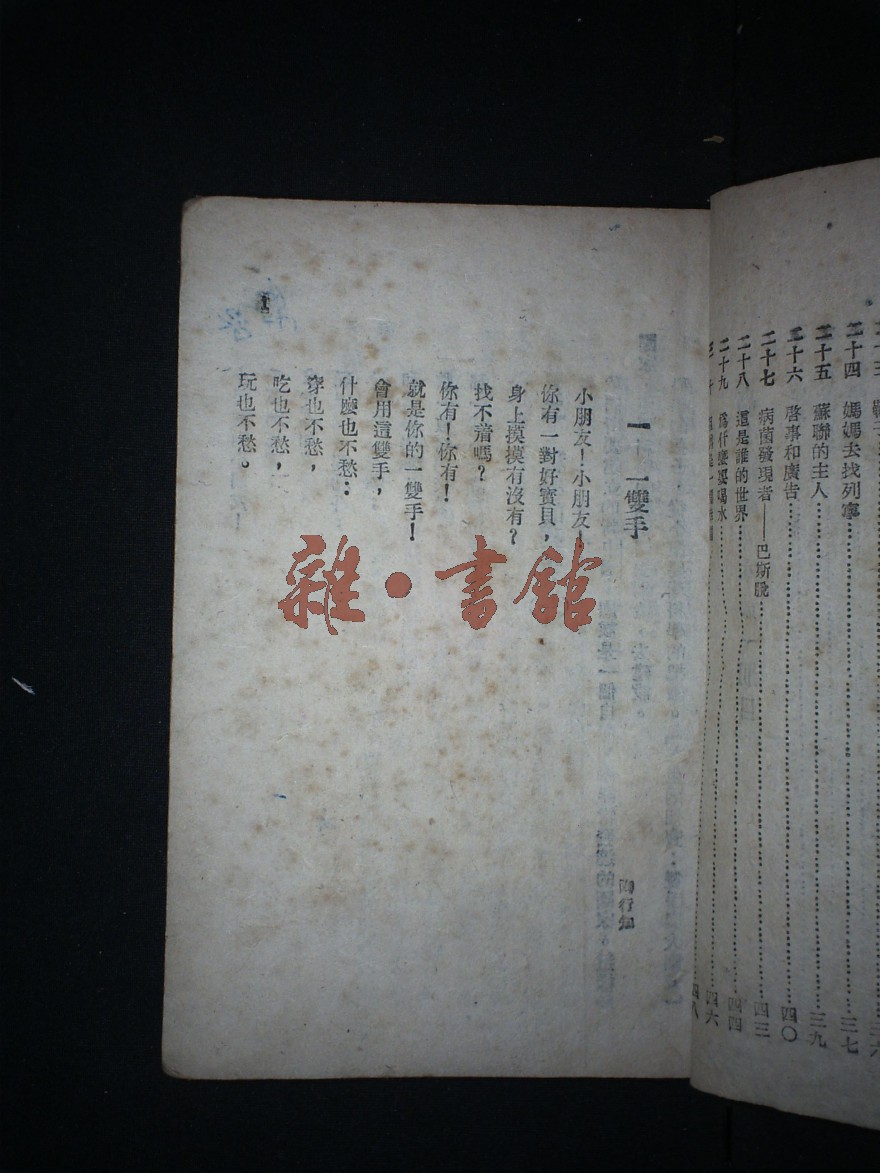 二十四 媽媽去找列寧 三七
二十五 蘇聯的主人 三九
二十六 啓事和廣告 四〇
二十七 病菌發現者——巴斯脫 四三
二十八 這是誰的世界 四四
二十九 爲什麼要喝水 四六
四八
一 一雙手
陶行知
小朋友！小朋友！
你有一對好寶貝，
身上摸摸有沒有？
找不着嗎？
你有！你有！
就是你的一雙手！
會用這雙手，
什麼也不愁：
穿也不愁，
吃也不愁，
玩也不愁。
雜·書館